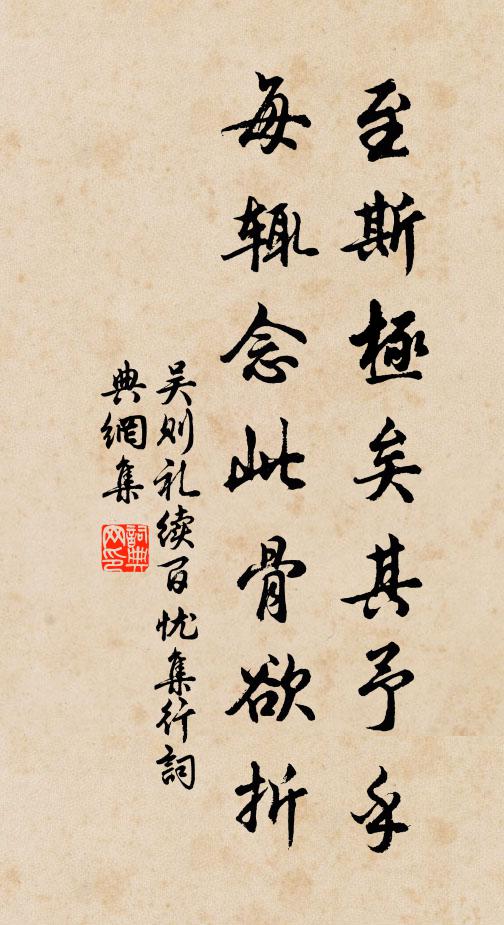 至斯極矣其予乎
每辄念此骨欲折
吴则礼续百忧集行詞
典網集
詞典
网印